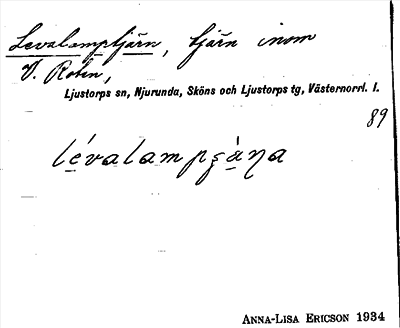 Levalamptjärn, tjärn inom
V. Roten,
Ljustorps sn, Njurunda, Sköns och Ljustorps tg, Västernorrl. l.
89
lévalampʂàɳa
ANNA-LISA ERICSON 1934